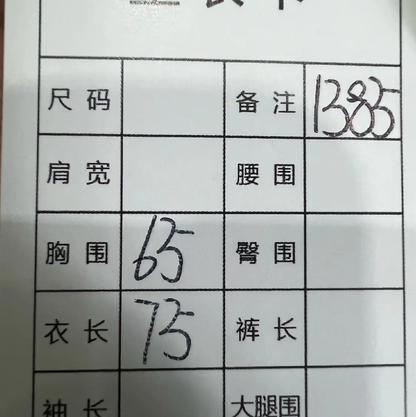 尺码 备注 1385
肩宽 腰围
胸围 65 臀围
衣长 75 裤长
袖长 大腿围